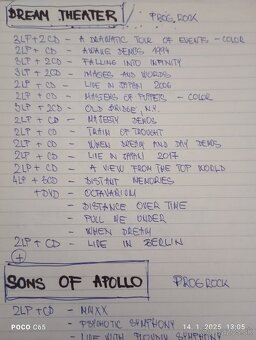 DREAM THEATER PROG.ROCK
2LP+2CD - A DRAMATIC TOUR OF EVENTS - COLOR
2LP + CD - AWAKE DEMOS 1994
3LP + 2CD - FALLING INTO INFINITY
3LP + 2CD - IMAGES AND WORDS
2LP + CD - LIVE IN JAPAN 2006
2LP + CD - MASTERS OF PUPPETS - COLOR
3LP + 2CD - OLD BRIDGE, N.Y.
2LP + CD - MAJESTY DEMOS
2LP + CD - TRAIN OF THOUGHT
2LP + CD - WHEN DREAM AND DAY DEMOS
2LP + CD - LIVE IN JAPAN 2017
2LP + CD - A VIEW FROM THE TOP WORLD
4LP + 3CD - DISTANT MEMORIES
+DVD - OCTAVARIUM
- DISTANCE OVER TIME
- PULL ME UNDER
- WHEN DREAM
2LP + CD - LIVE IN BERLIN
+
SONS OF APOLLO PROGROCK
2LP+CD - MMXX
- PSYCHOTIC SYMPHONY
- LIVE WITH PLOVDIV SYMPHONY
POCO C65 14. 1. 2025 13:05